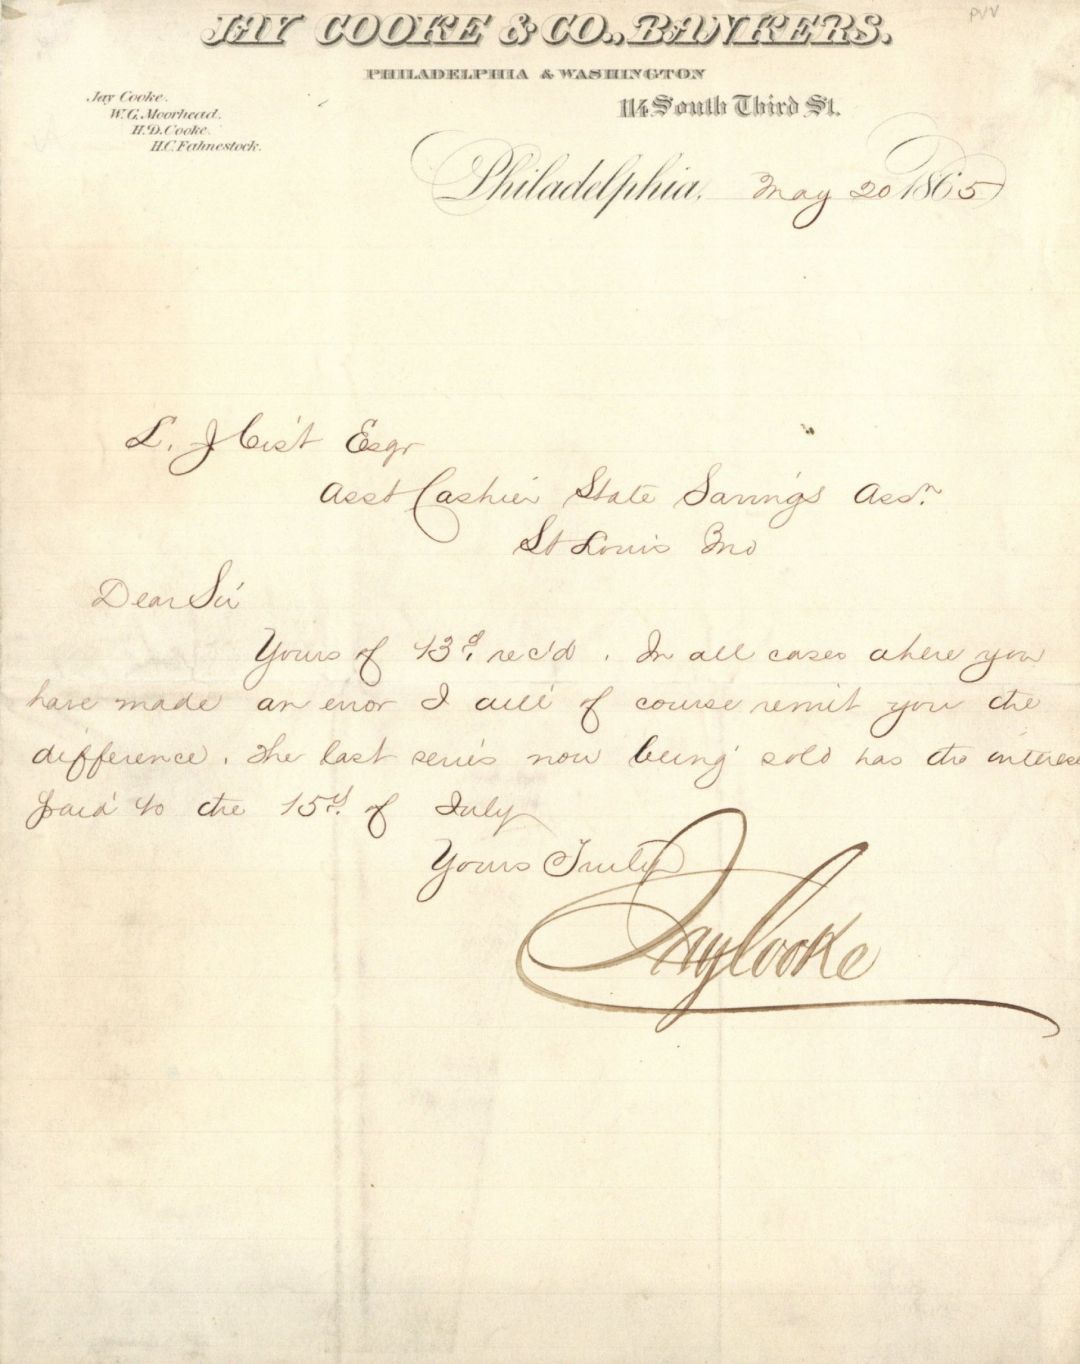 PVV
JAY COOKE & CO., BANKERS.
PHILADELPHIA & WASHINGTON
114 South Third St.
Jay Cooke.
W.G. Moorhead.
H.D. Cooke.
H.C. Fahnestock.
Philadelphia, May 20 1865
L. J Cist Esqr
Asst Cashier State Savings Assn.
St Louis Mo
Dear Sir
Yours of 13d. rec'd. In all cases where you
have made an error I will of course remit you the
difference. The last series now being sold has the interes
paid to the 15d. of July
Yours Truly
Jay Cooke